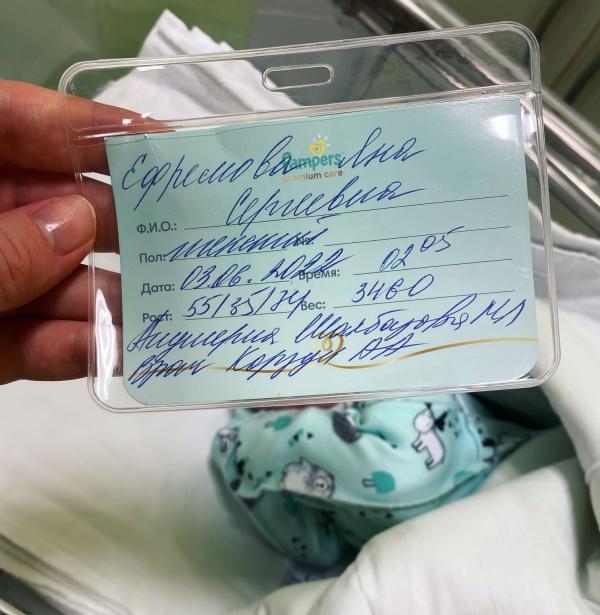 Ефремова Яна
Pampers
premium care
Сергеевна
Ф.И.О.:
Пол: женский №:
Дата: 03.06.2022 Время: 02 05
Рост: 55/35/34 Вес: 3460
Акушерка МЛ
Врач АА